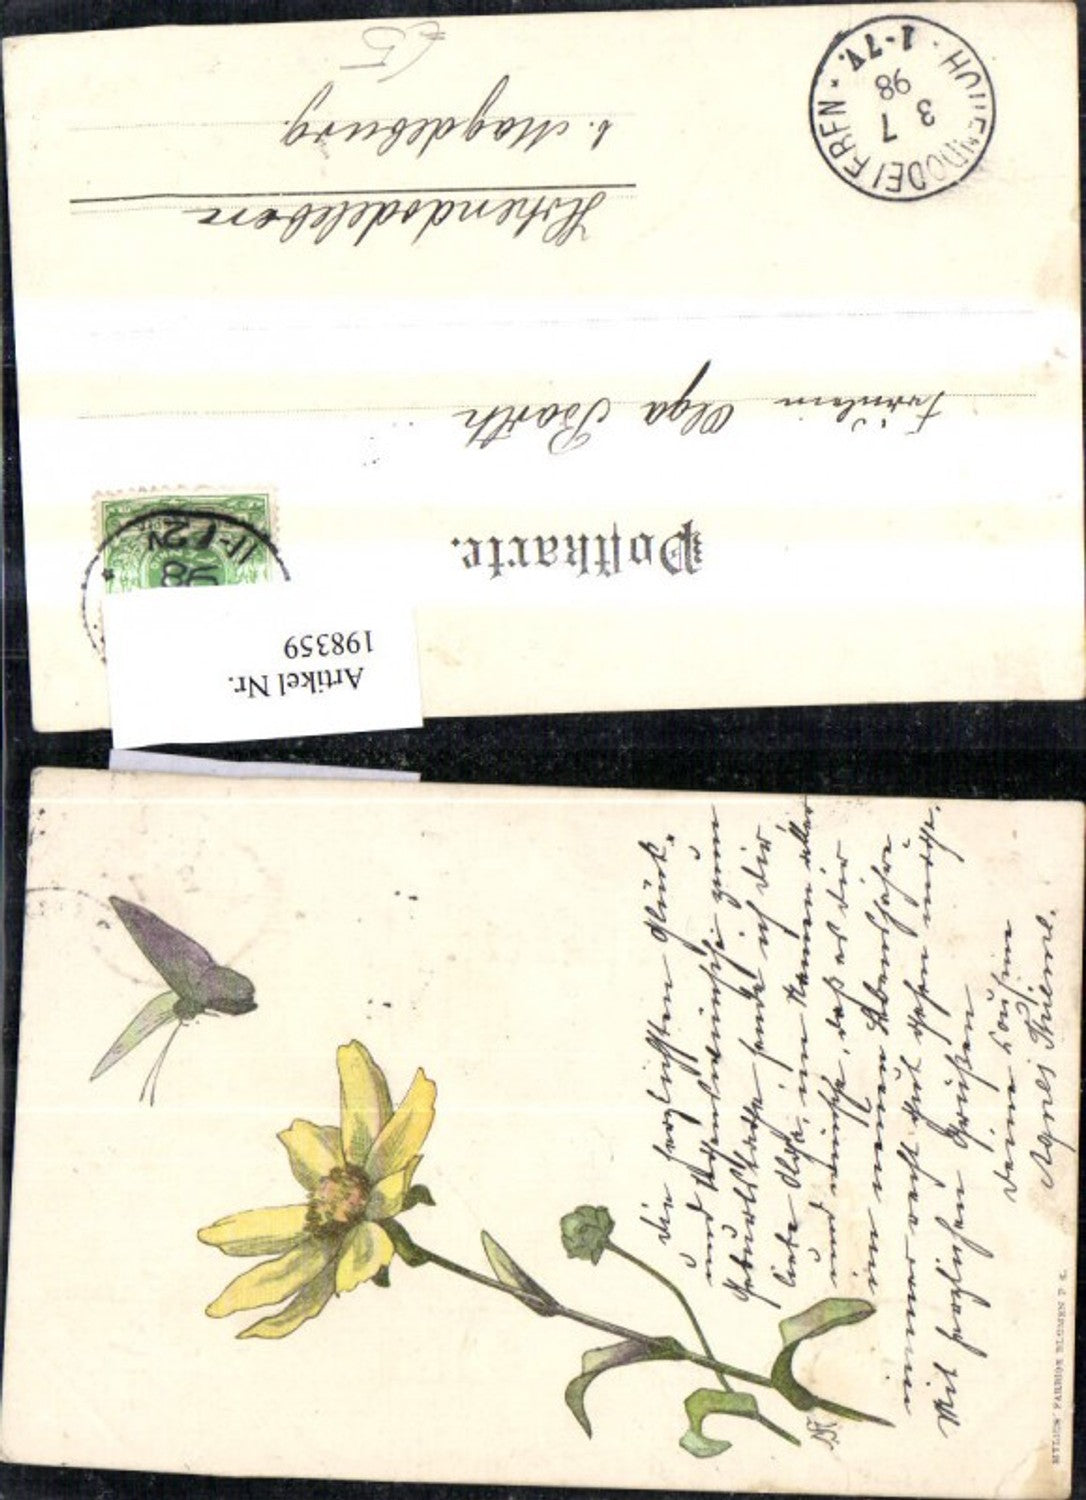 Postkarte.
Fräulein Olga Barth
Hohendodeleben
b. Magdeburg.
£5
HOHENDODELEBEN
3 7
98
1-7V.
11-12V
98
Artikel Nr.
198359
Die herzlichsten Glück-
und Segenswünsche zum
Geburtstage sende ich dir
liebe Olga, im Namen aller
und wünsche, daß es dir
im neuen Lebensjahre
immer recht gut gehen möge.
Mit herzlichen Grüßen
Deine Cousine
Agnes Thieme.
MYLIUS' FARBIGE BLUMEN P. C.